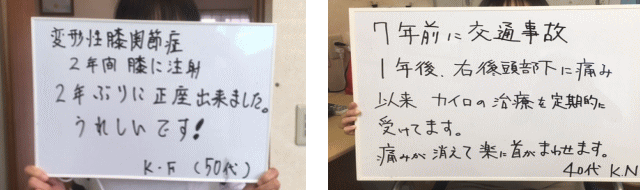 変形性膝関節症
2年間 膝に注射
2年ぶりに正座出来ました。
うれしいです!
K・F (50代)
7年前に交通事故
1年後、右後頭部下に痛み
以来 カイロの治療を定期的に
受けてます。
痛みが消えて楽に首がまわせます。
40代 K.N